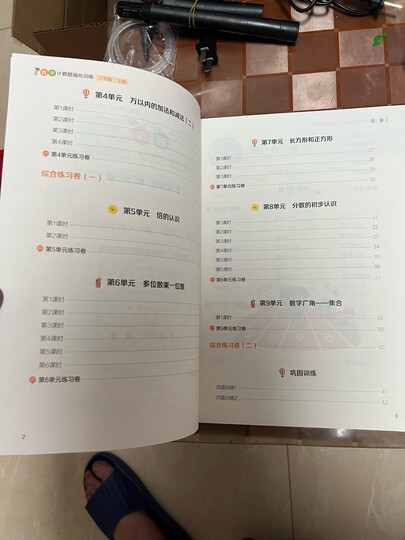 计算题强化训练 三年级 上册
第4单元 万以内的加法和减法（二）
第1课时
第2课时
第3课时
第4课时
第4单元练习卷
综合练习卷（一）
第5单元 倍的认识
第1课时
第2课时
第5单元练习卷
第6单元 多位数乘一位数
第1课时
第2课时
第3课时
第4课时
第5课时
第6课时
第7课时
第6单元练习卷
2
目 录
第7单元 长方形和正方形
第1课时 27
第2课时 28
第3课时 29
第7单元练习卷 30
第8单元 分数的初步认识
第1课时 31
第2课时 32
第3课时 33
第4课时 34
第5课时 35
第6课时 36
第8单元练习卷 37
第9单元 数学广角——集合
第1课时 38
第9单元练习卷 39
综合练习卷（二） 40
巩固训练
巩固训练1 41
巩固训练2 42